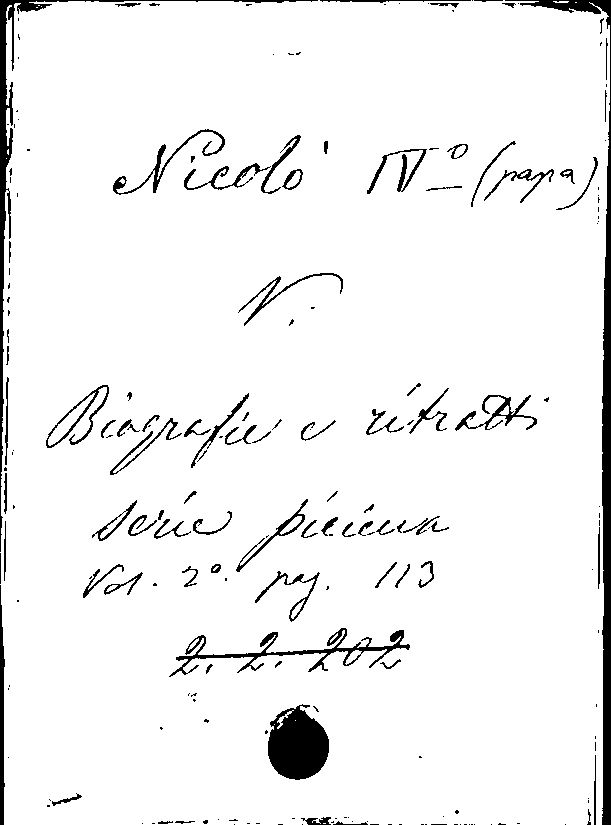 Nicolò IVº (papa)
V.
Biografie e ritratti
serie picena
Vol. 2º. pag. 113
2. 2. 202